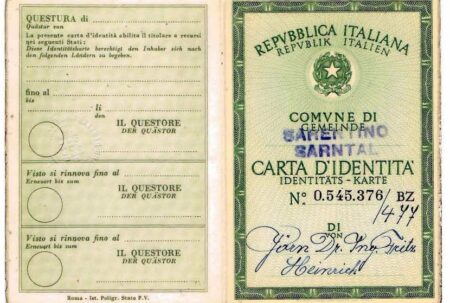 QUESTURA di
Quästur von
La presente carta d'identità abilita il titolare a recarsi
nei seguenti Stati:
Diese Identitätskarte berechtigt den Inhaber sich nach
den folgenden Ländern zu begeben.
fino al
bis
li
den
IL QUESTORE
DER QUÄSTOR
Visto si rinnova fino al
Erneuert bis zum
IL QUESTORE
DER QUÄSTOR
Visto si rinnova fino al
Erneuert bis zum
IL QUESTORE
DER QUÄSTOR
Roma - Ist. Poligr. Stato P.V.
REPVBBLICA ITALIANA
REPVBLIK ITALIEN
COMVNE DI
GEMEINDE
SARENTINO
SARNTAL
CARTA D'IDENTITA'
IDENTITÄTS-KARTE
Nº 0.545.376 / BZ
/477
DI
VON
Dr. Ing. Fritz
Heinrich